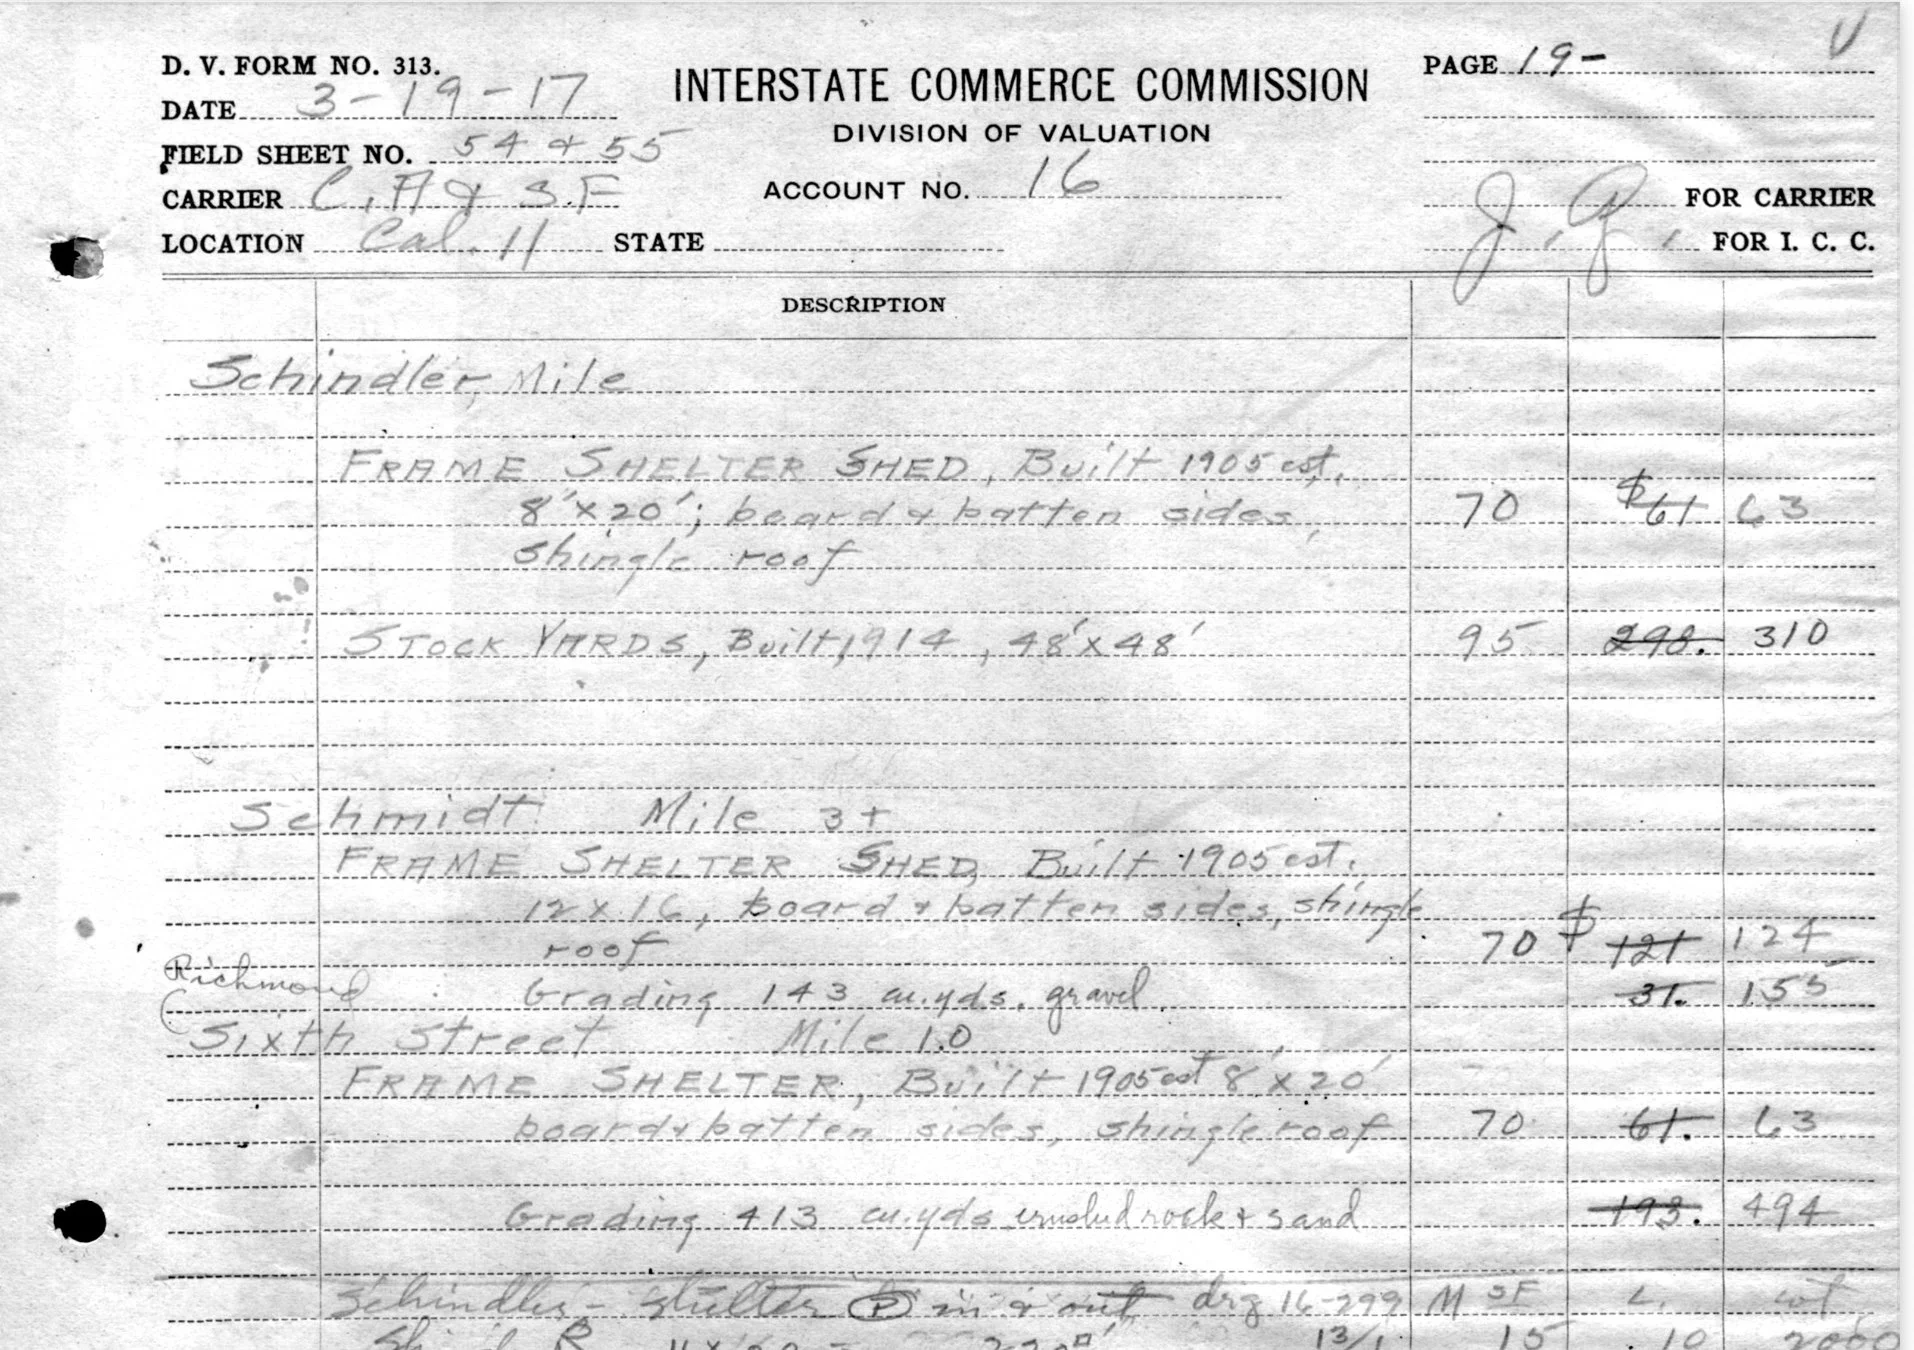 D. V. FORM NO. 313.
DATE 3-19-17
FIELD SHEET NO. 54 & 55
CARRIER C. A & S. F
LOCATION Cal. 11 STATE
INTERSTATE COMMERCE COMMISSION
DIVISION OF VALUATION
ACCOUNT NO. 16
PAGE 19-
J. G. FOR CARRIER
FOR I. C. C.
DESCRIPTION
Schindler, Mile
FRAME SHELTER SHED, Built 1905 est.
8'x20'; board & batten sides, 70 $61 63
shingle roof
STOCK YARDS, Built, 1914, 48'x48' 95 298. 310
Schmidt Mile 3+
FRAME SHELTER SHED, Built 1905 est.
12x16, board & batten sides, shingle
roof 70 $121 124
Richmond Grading 143 cu.yds. gravel 31. 155
Sixth Street Mile 1.0
FRAME SHELTER, Built 1905 est 8'x20'
board & batten sides, shingle roof 70 61. 63
Grading 413 cu.yds crushed rock & sand 193. 494
Schindler - Shelter (P) in & out drg 16-299 M SF L. wt
13/1 15 10 2000